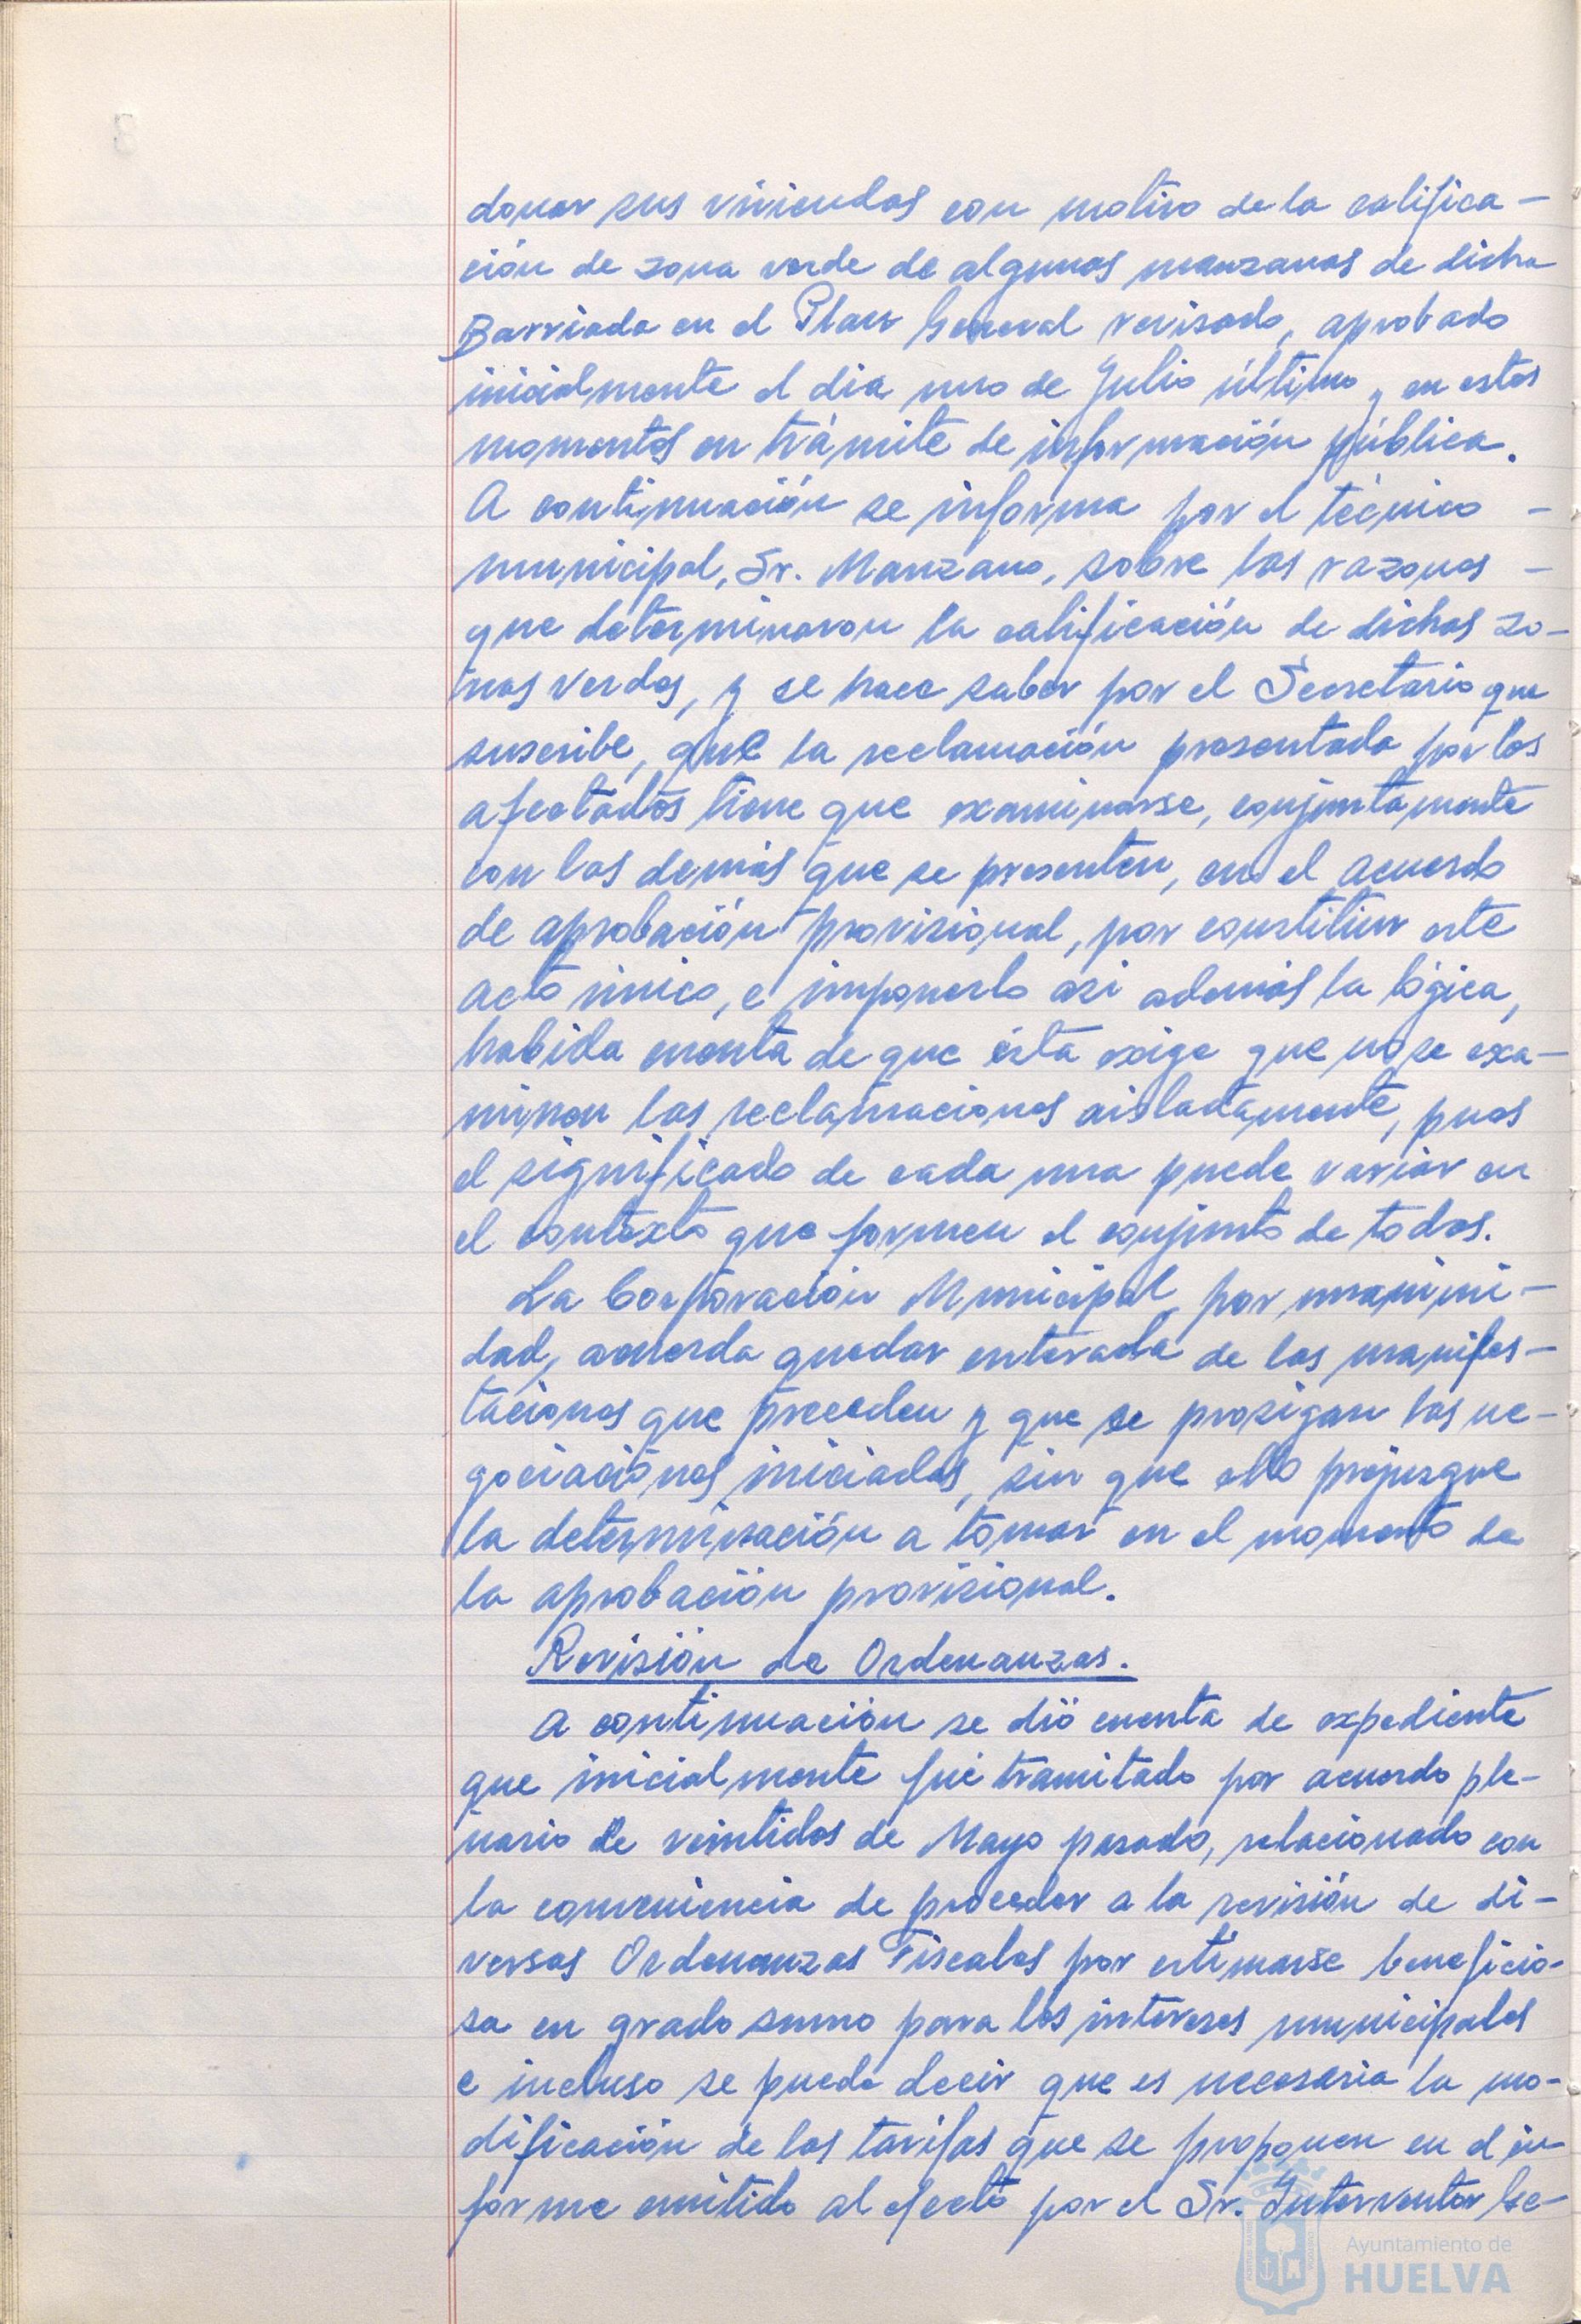 donar sus viviendas con motivo de la califica-
ción de zona verde de algunas manzanas de dicha
Barriada en el Plan General revisado, aprobado
inicialmente el dia uno de Julio último y en estos
momentos en trámite de información pública.
A continuación se informa por el técnico -
municipal, Sr. Manzano, sobre las razones -
que determinaron la calificación de dichas zo-
nas verdes, y se hace saber por el Secretario que
suscribe, que la reclamación presentada por los
afectados tiene que examinarse, conjuntamente
con las demás que se presenten, en el acuerdo
de aprobación provisional, por constituir este
acto único, e imponerlo asi además la lógica,
habida cuenta de que ésta exige que no se exa-
minen las reclamaciones aisladamente, pues
el significado de cada una puede variar en
el contexto que formen el conjunto de todas.
La Corporación Municipal, por unanimi-
dad, acuerda quedar enterada de las manifes-
taciones que preceden y que se prosigan las ne-
gociaciones iniciadas, sin que ello prejuzgue
la determinación a tomar en el momento de
la aprobación provisional.
Revisión de Ordenanzas.
A continuación se dió cuenta de expediente
que inicialmente fué tramitado por acuerdo ple-
nario de veintidos de Mayo pasado, relacionado con
la conveniencia de proceder a la revisión de di-
versas Ordenanzas Fiscales por estimarse beneficio-
sa en grado sumo para los intereses municipales
e incluso se puede decir que es necesaria la mo-
dificación de las tarifas que se proponen en el in-
forme emitido al efecto por el Sr. Interventor Ge-
Ayuntamiento de
HUELVA